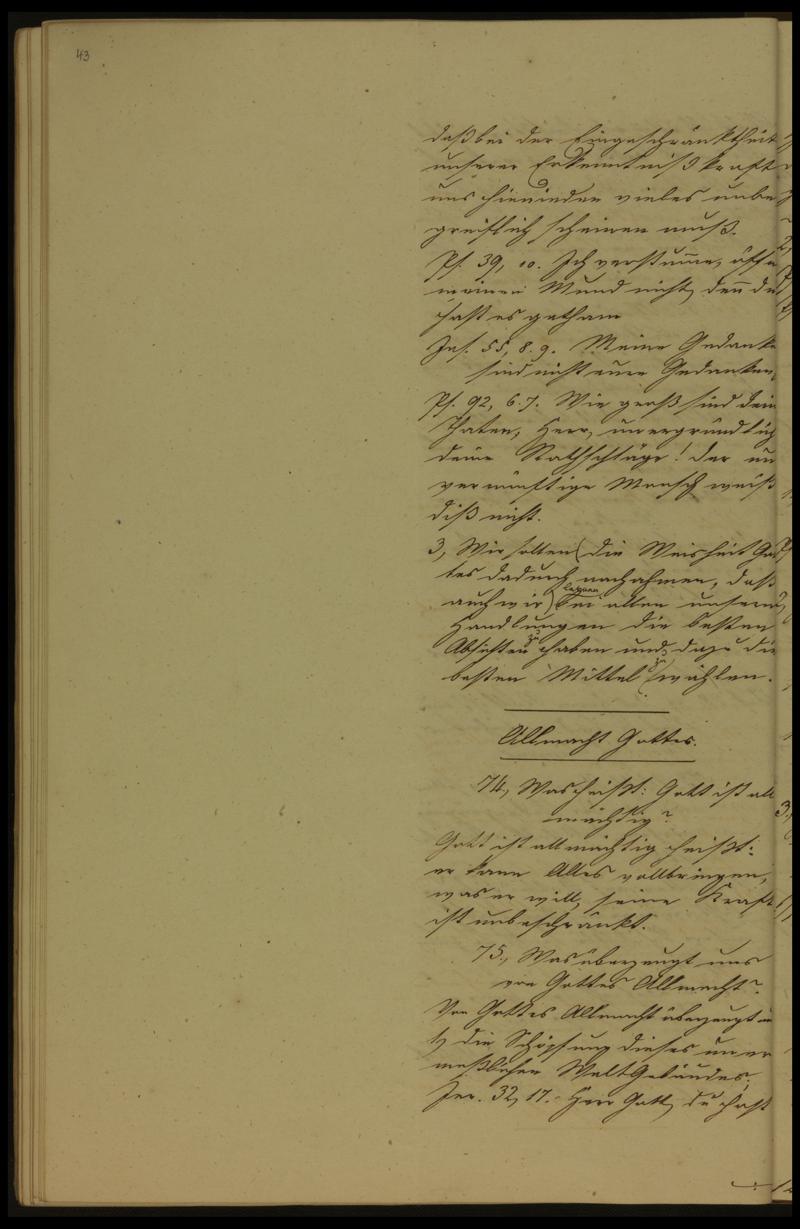 43
daß bei der Eingeschränktheit
unserer Erkenntnißkraft
uns hienieden vieles unbe
greiflich scheinen muß.
Ps. 39, 10. Ich verstum̄e, öffn
meinen Mund nicht, den̄ du
hast es gethan
Jes. 55, 8. 9. Meine Gedanke
sind nicht eure Gedanken,
Ps. 92, 6. 7. Wie groß sind dein
Thaten, Herr, unergründlich
deine Rathschläge! Der un
vernünftige Mensch weiß
diß nicht.
3, Wir sollen (die Weisheit Got
tes dadurch nachahmen, daß
auch wir) bei allen unsern
Handlungen die besten
Absichten zu haben und dazu die
besten Mittel zu wählen.
Allmacht Gottes.
74, Was heißt: Gott ist all
mächtig?
Gott ist allmächtig heißt:
er kann Alles vollbringen,
was er will, seine Kraft
ist unbeschränkt.
75, Was überzeugt uns
von Gottes Allmacht?
Von Gottes Allmacht überzeugt u
1, die Schöpfung dieses uner
meßlichen Weltgebäudes.
Jer. 32, 17. Herr Gott, du hast